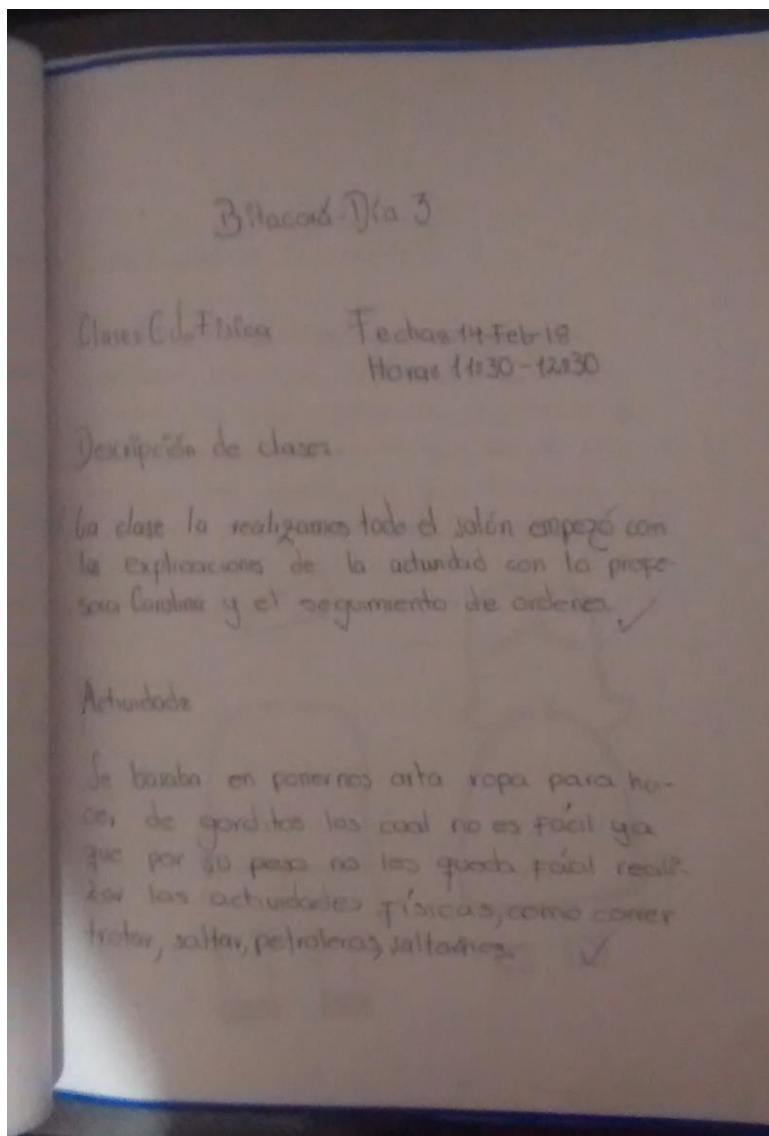 Bitacora Día 3
Clase: Ed. Física Fecha: 14-Feb-18
Hora: 11:30-12:30
Descripción de clase:
La clase la realizamos todo el salón empezó con
las explicaciones de la actividad con la profe-
sora Carolina y el seguimiento de ordenes.
Actividad:
Se basaba en ponernos arta ropa para ha-
cer de gorditos los cual no es fácil ya
que por su peso no les queda fácil reali-
zar las actividades físicas, como correr
trotar, saltar, petroleras, saltarines.